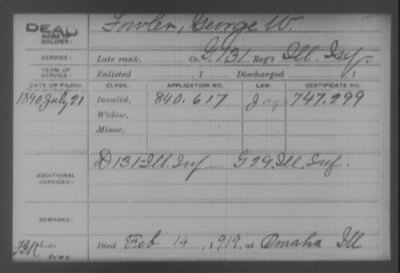 DEAD
NAME OF SOLDIER: Fowler, George W.
SERVICE: Late rank, Co. G, 131 Reg't Ill. Inf.
TERM OF SERVICE: Enlisted , 1 Discharged , 1
DATE OF FILING. CLASS. APPLICATION NO. LAW. CERTIFICATE NO.
1890 July 21 Invalid, 840.617 747.299
Widow,
Minor,
ADDITIONAL SERVICES: D 131 Ill. Inf. G 29 Ill. Inf.
REMARKS:
Died Feb 14, 1919, at Omaha Ill